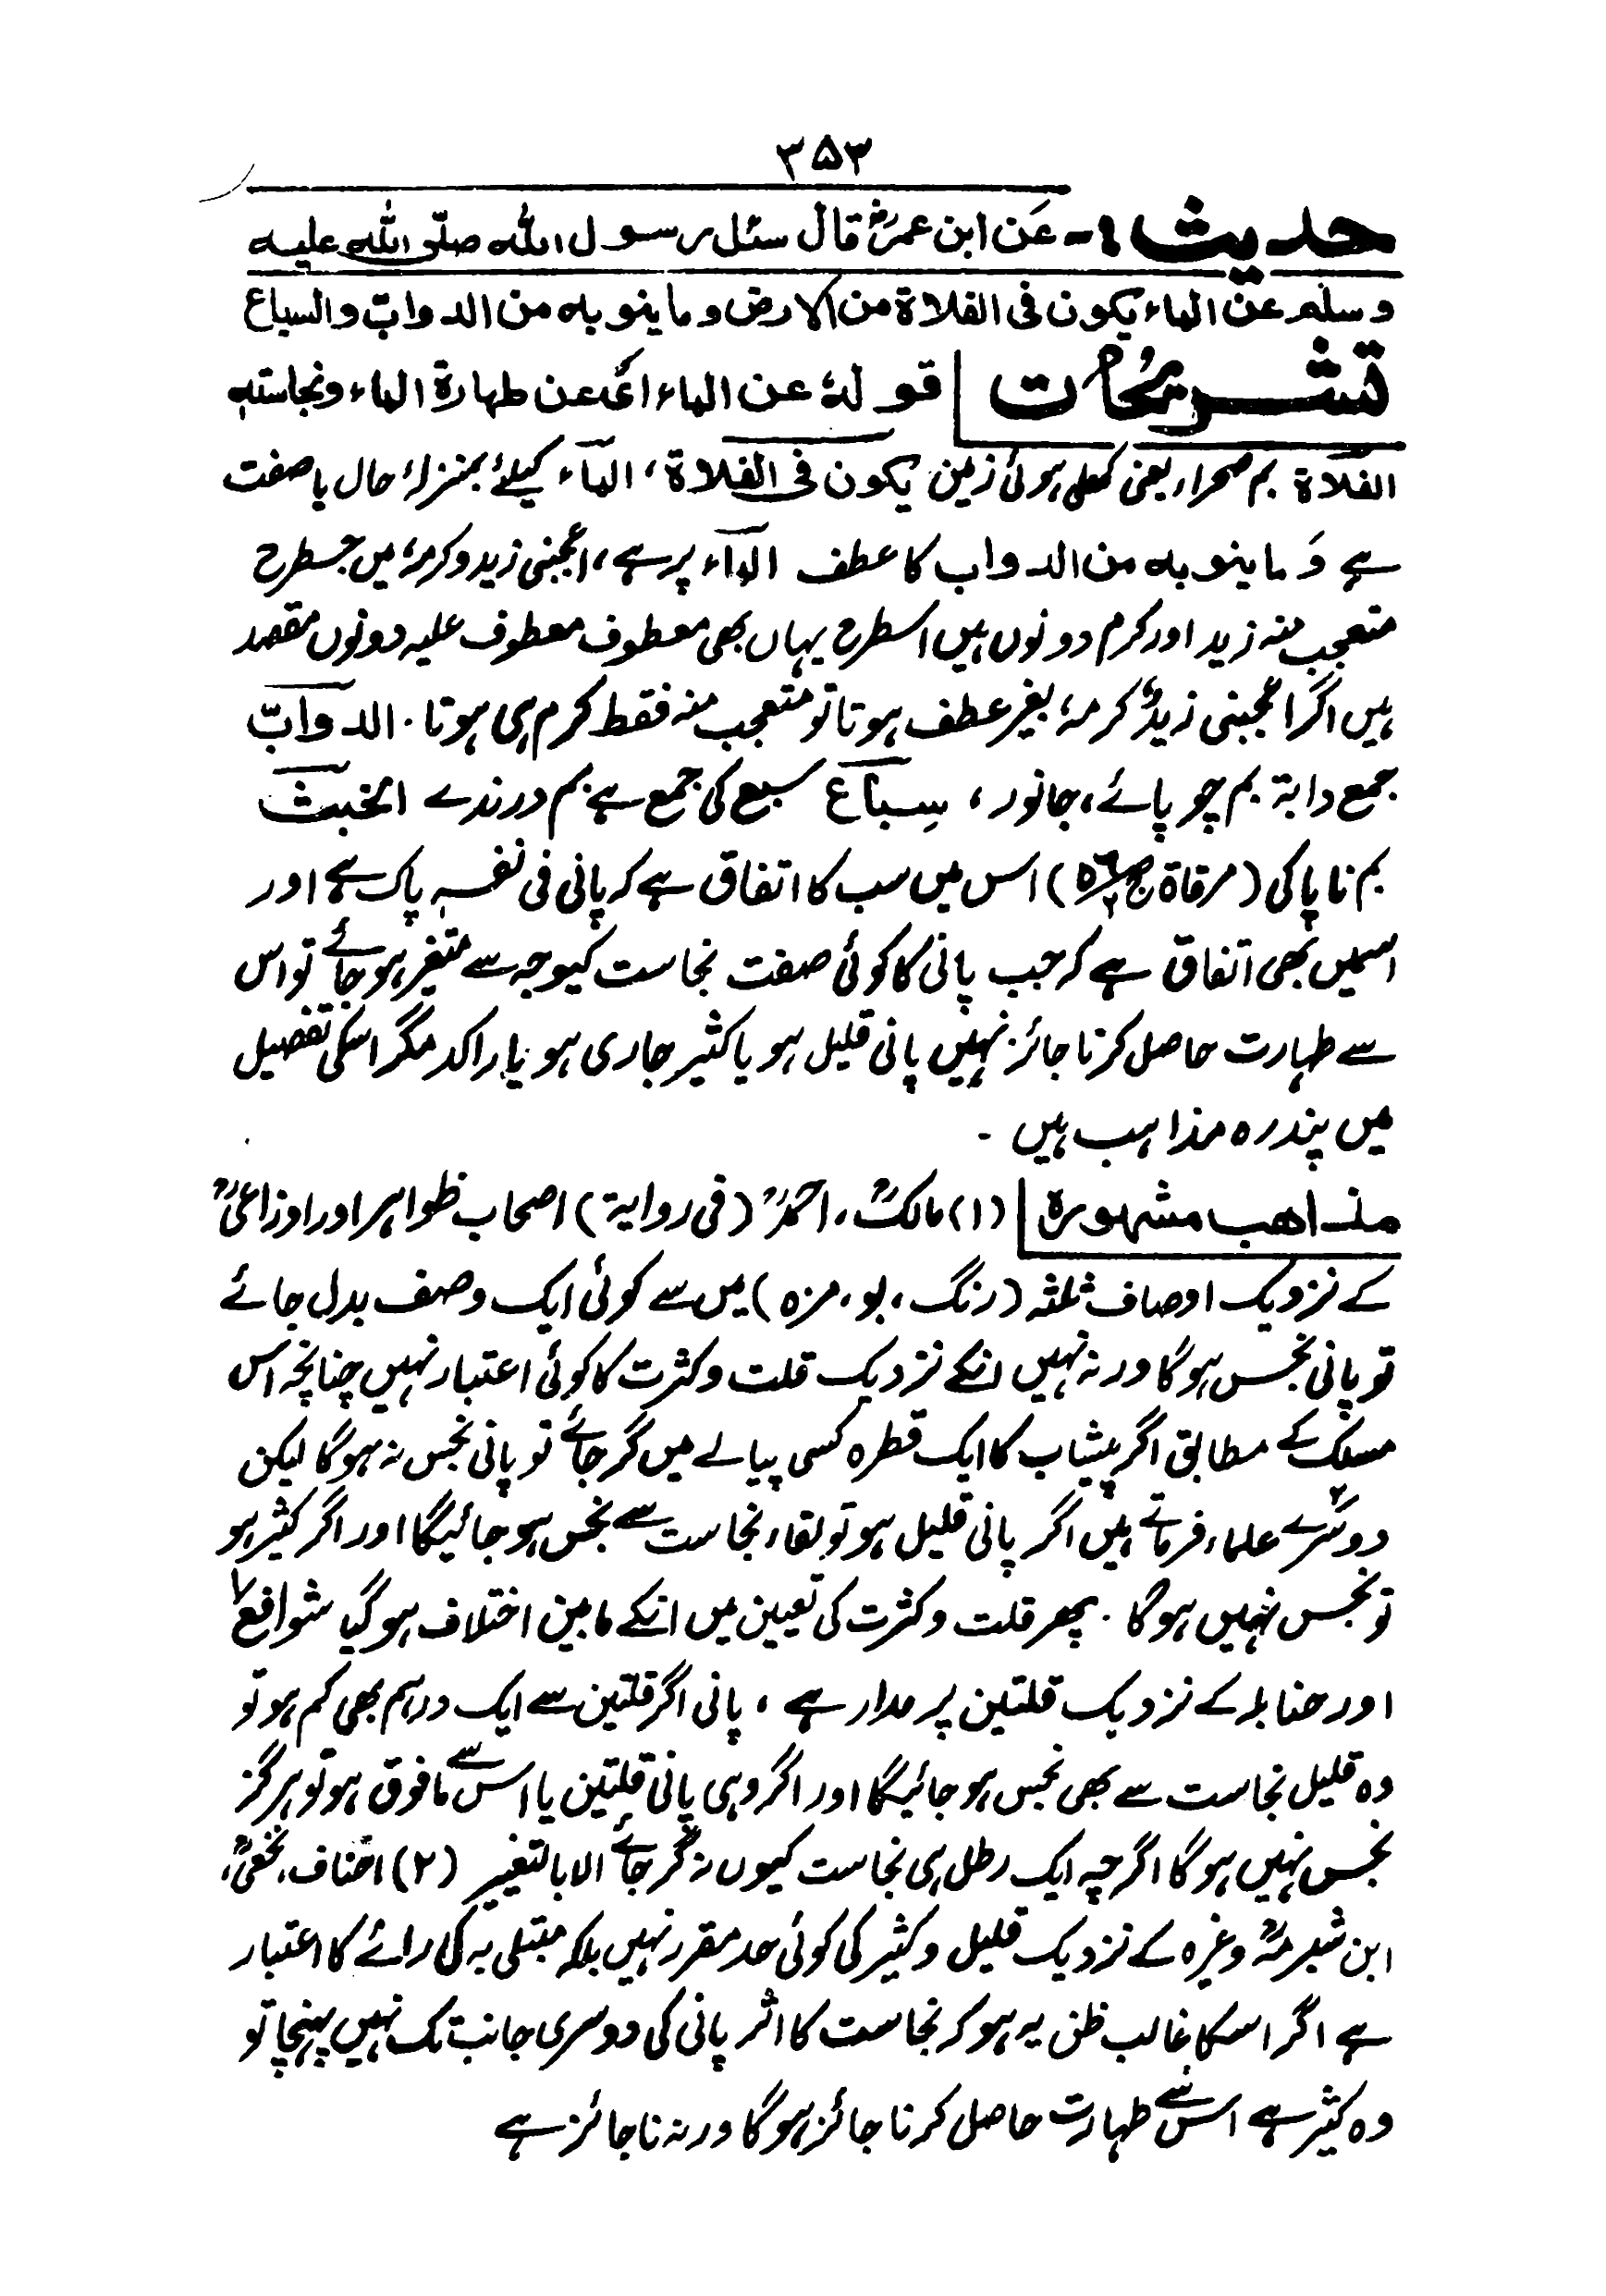 ۳۵۳
حدیث ۱:- عَن ابن عمرؓ قال سئل رسول الله صلّى الله عليه
وسلم عن الماء يكون فى الفلاة من الارض وما ينوبه من الدوابّ والسباع
تشریحات | قولہٗ عن الماء اى عن طهارة الماء ونجاسته
الفلاة بم صحراء یعنی کھلی ہوئی زمین یکون فی الفلاة، الماء کیلئے بمنزلۂ حال یا صفت
ہے وَما ینوبہ من الدواب کا عطف الماء پر ہے، اعجبنی زید وکرمہٗ میں جسطرح
متعجب منہ زید اور کرم دونوں ہیں اسطرح یہاں بھی معطوف معطوف علیہ دونوں مقصد
ہیں اگر اعجبنی زیدٌ کرمہٗ بغیر عطف ہوتا تو متعجب منہ فقط کرم ہی ہوتا۔ الدوابّ
جمع دابۃ بم چوپائے، جانور، سِباع سبع کی جمع ہے بم درندے الخبث
بم ناپاکی (مرقاۃ ج۲ ص۵۶) اس میں سب کا اتفاق ہے کہ پانی فی نفسہٖ پاک ہے اور
اسمیں بھی اتفاق ہے کہ جب پانی کا کوئی صفت نجاست کیوجہ سے متغیر ہوجائے تو اس
سے طہارت حاصل کرنا جائز نہیں پانی قلیل ہو یا کثیر جاری ہو یا راکد مگر اسکی تفصیل
میں پندرہ مذاہب ہیں ۔
مذاهب مشہورة | (۱) مالکؒ، احمدؒ (فی روایۃ) اصحاب ظواہر اور اوزاعیؒ
کے نزدیک اوصاف ثلثہ (رنگ، بو، مزہ) میں سے کوئی ایک وصف بدل جائے
تو پانی نجس ہوگا ورنہ نہیں انکے نزدیک قلت وکثرت کا کوئی اعتبار نہیں چنانچہ اس
مسلک کے مطابق اگر پیشاب کا ایک قطرہ کسی پیالے میں گر جائے تو پانی نجس نہ ہوگا لیکن
دوسرے علماء فرماتے ہیں اگر پانی قلیل ہو تو لقاء نجاست سے نجس ہوجائیگا اور اگر کثیر ہو
تو نجس نہیں ہوگا۔ پھر قلت وکثرت کی تعیین میں انکے مابین اختلاف ہوگیا شوافع
اور حنابلہ کے نزدیک قلتین پر مدار ہے، پانی اگر قلتین سے ایک درہم بھی کم ہو تو
وہ قلیل نجاست سے بھی نجس ہوجائیگا اور اگر وہی پانی قلتین یا اس سے مافوق ہو تو ہرگز
نجس نہیں ہوگا اگرچہ ایک رطل ہی نجاست کیوں نہ گر جائے الا بالتغیر (۲) احناف، نخعیؒ،
ابن شبرمہؒ وغیرہ کے نزدیک قلیل وکثیر کی کوئی حد مقرر نہیں بلکہ مبتلی بہ کی رائے کا اعتبار
ہے اگر اسکا غالب ظن یہ ہو کہ نجاست کا اثر پانی کی دوسری جانب تک نہیں پہنچا تو
وہ کثیر ہے اس سے طہارت حاصل کرنا جائز ہوگا ورنہ ناجائز ہے